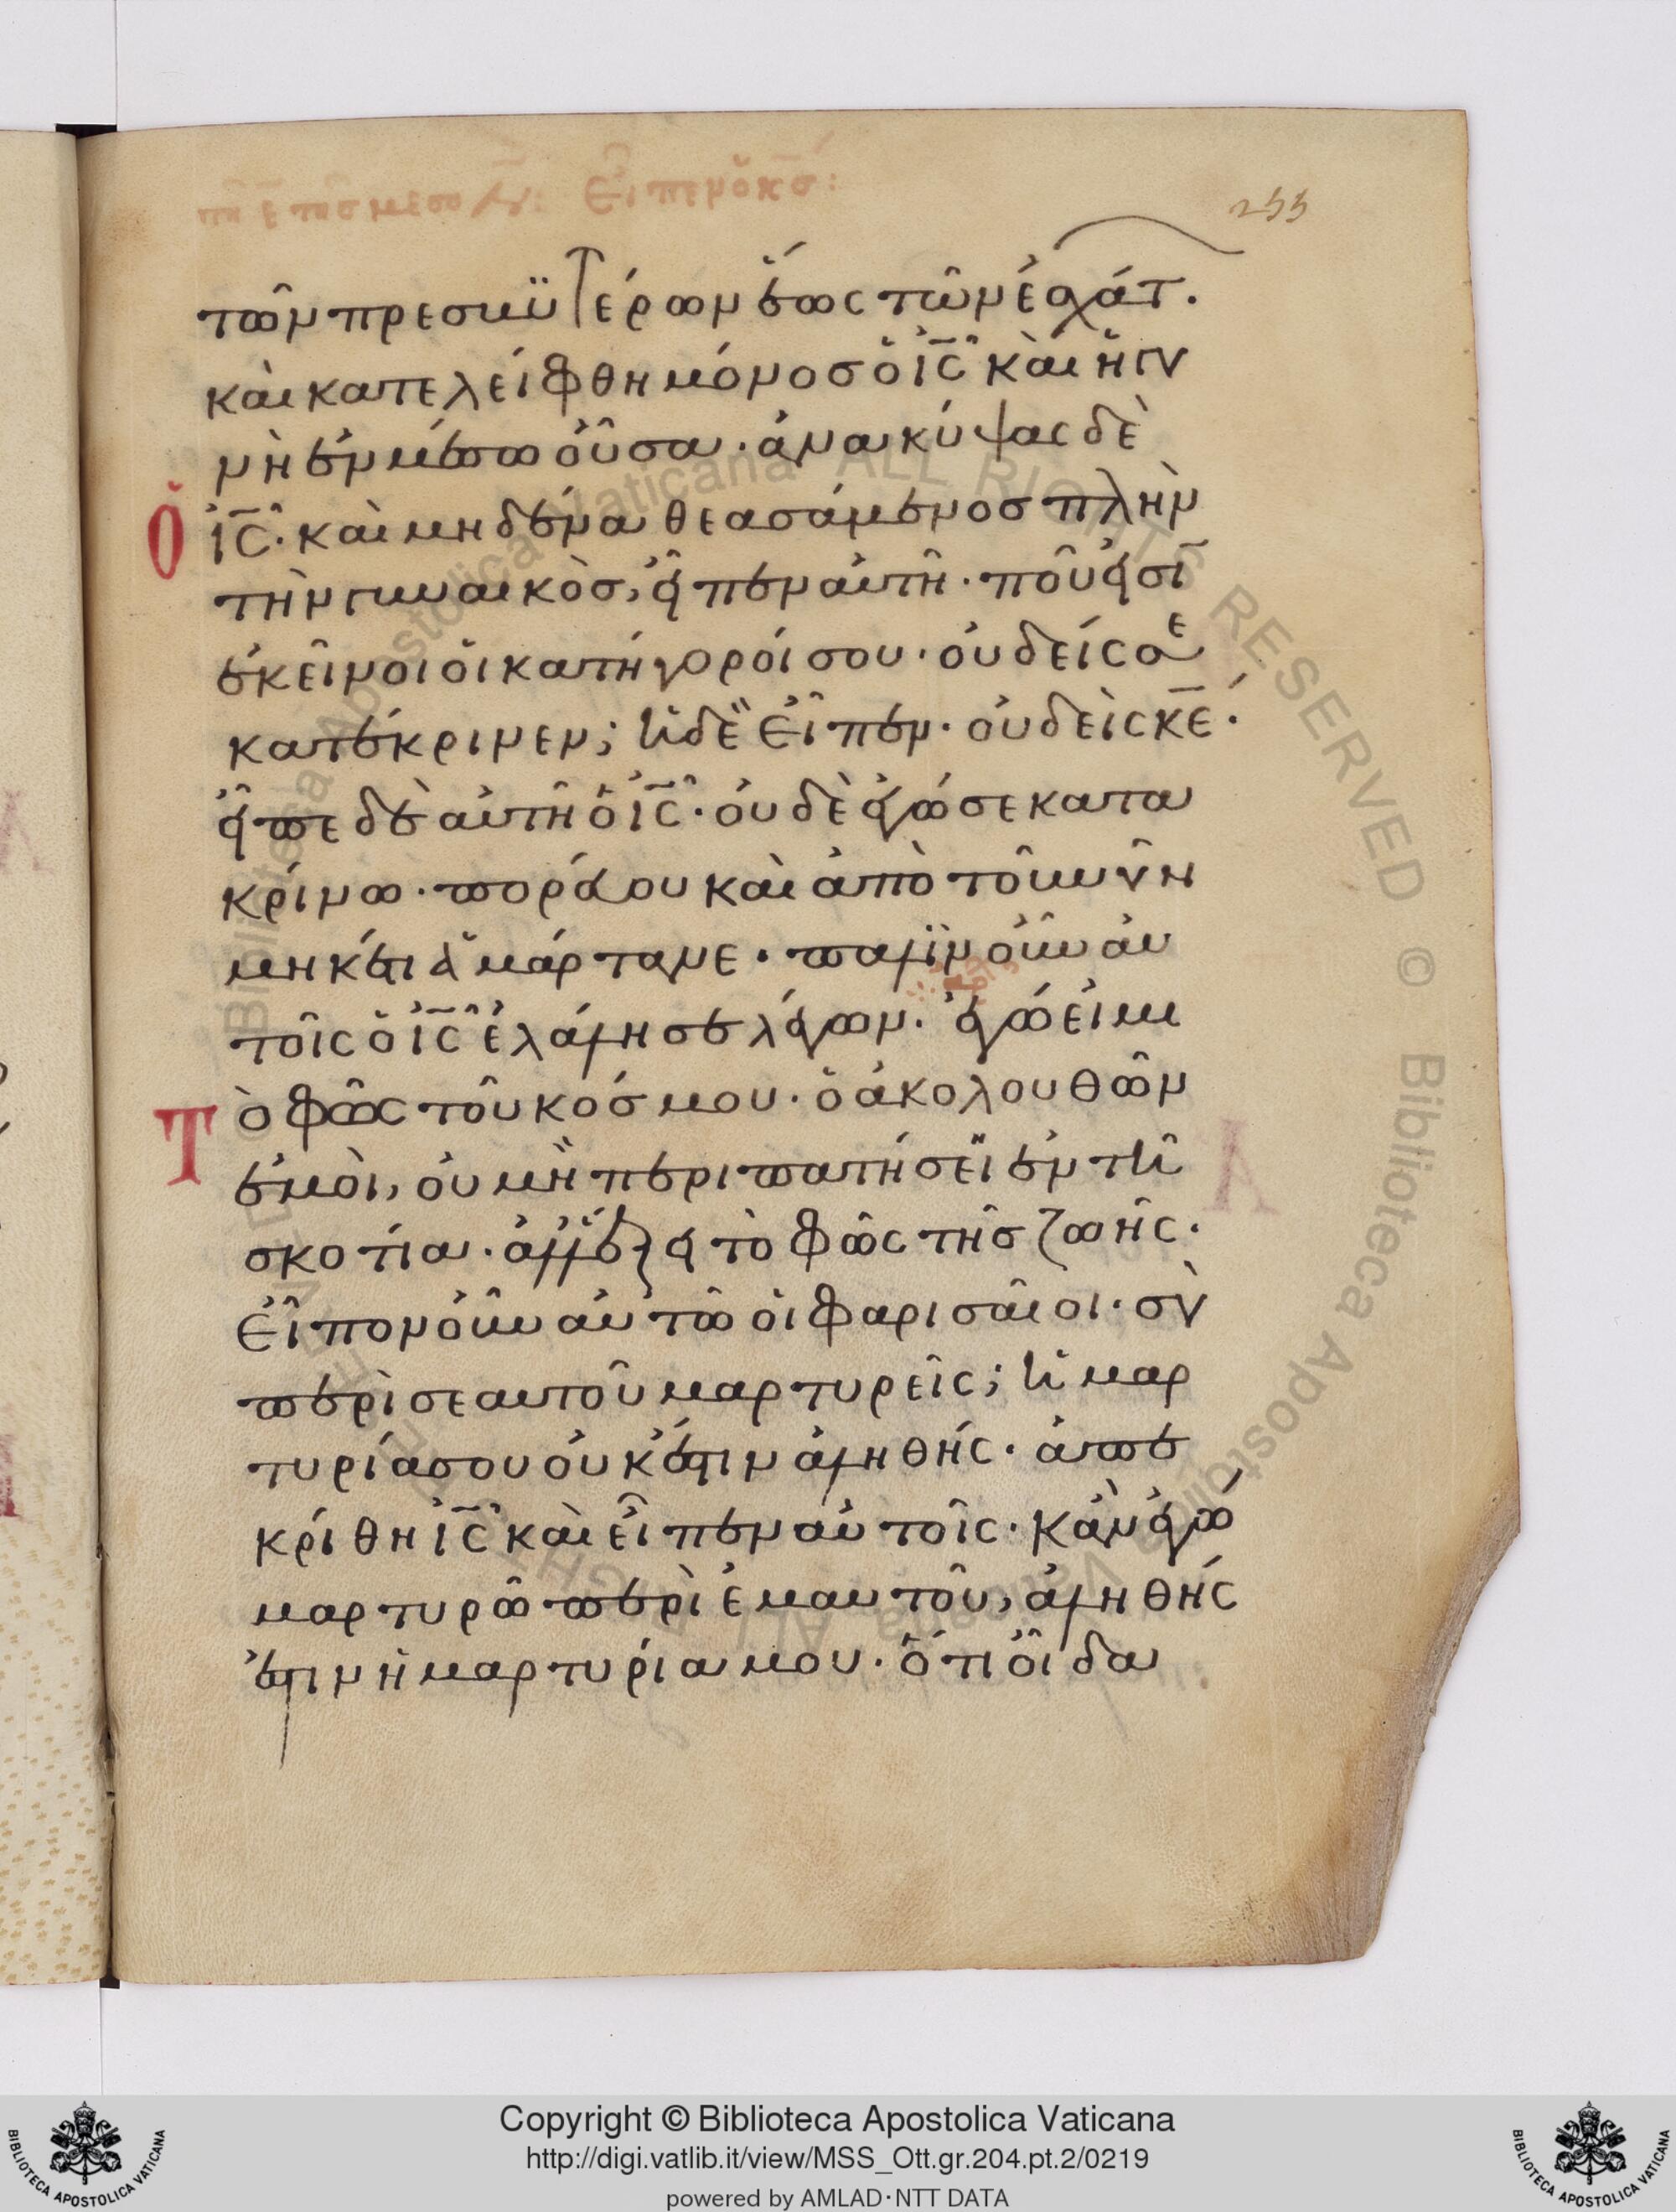 255
τῶν πρεσβϋτέρων ἕως τῶν ἐσχάτ.
καὶ κατελείφθη μόνος ὁ ἰ̅ς̅ καὶ ἡ γυ
νὴ ἐν μέσω οὖσα · ἀνακύψας δὲ
ὁ ἰ̅ς̅ · καὶ μηδένα θεασάμενος πλὴν
τὴν γυναικὸς, εἶπεν αὐτῆ · ποῦ εἰσὶ
ἐκεῖνοι οἱ κατήγοροί σου · οὐδείς σε
κατέκρινεν; ἡ δὲ εἶπεν · οὐδεὶς κ̅ε̅ ·
εἶπε δὲ αὐτῆ ὁ ἰ̅ς̅ · οὐδὲ ἐγώ σε κατα
κρίνω · πορεύου καὶ ἀπὸ τοῦ νῦν
μηκέτι ἁμάρτανε · πάλιν οὖν αὐ
τοῖς ὁ ἰ̅ς̅ ἐλάλησε λέγων · ἐγώ εἰμι
τὸ φῶς τοῦ κόσμου · ὁ ἀκολουθῶν
ἐμοὶ, οὐ μὴ περιπατήσει ἐν τῆ
σκοτία · ἀλλ' ἕξει τὸ φῶς τῆς ζωῆς ·
Εἶπον οὖν αὐτῶ οἱ φαρισαῖοι · σὺ
περὶ σεαυτοῦ μαρτυρεῖς; ἡ μαρ
τυρία σου οὐκ ἔστιν ἀληθής · ἀπε
κρίθη ἰ̅ς̅ καὶ εἶπεν αὐτοῖς · κἂν ἐγὼ
μαρτυρῶ περὶ ἐμαυτοῦ, ἀληθής
ἐστιν ἡ μαρτυρία μου · ὅτι οἶδα
Copyright © Biblioteca Apostolica Vaticana
http://digi.vatlib.it/view/MSS_Ott.gr.204.pt.2/0219
powered by AMLAD·NTT DATA